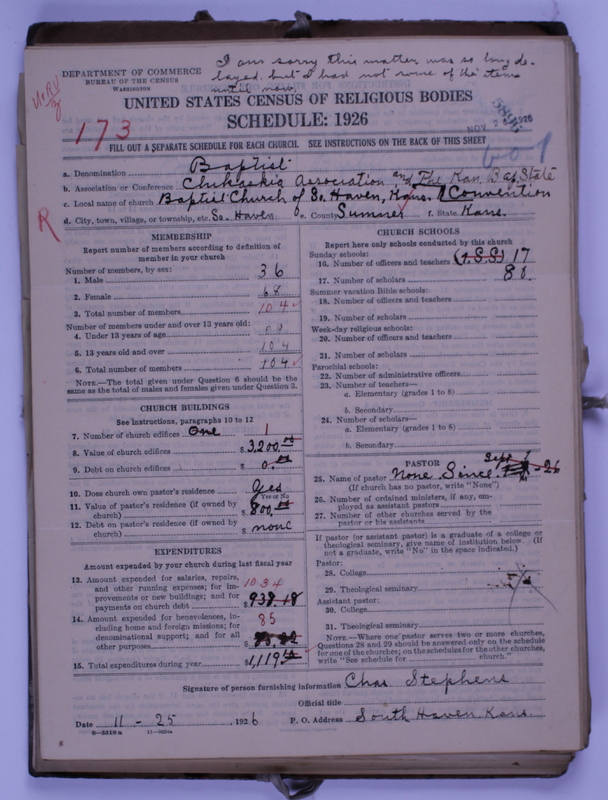 I am sorry this matter was so long de-
layed, but I had not some of the items
until now.
DEPARTMENT OF COMMERCE
BUREAU OF THE CENSUS
WASHINGTON
UNITED STATES CENSUS OF RELIGIOUS BODIES
SCHEDULE: 1926
173
NOV 2 1926
FILL OUT A SEPARATE SCHEDULE FOR EACH CHURCH. SEE INSTRUCTIONS ON THE BACK OF THIS SHEET
601
a. Denomination Baptist
b. Association or Conference Chikaskia Association and The Kan. Bap. State
c. Local name of church Baptist Church of So. Haven, Kans. Convention
R
d. City, town, village, or township, etc. So. Haven e. County Sumner f. State Kans.
MEMBERSHIP
Report number of members according to definition of
member in your church
Number of members, by sex:
1. Male 36
2. Female 68
3. Total number of members 104
Number of members under and over 13 years old:
4. Under 13 years of age
5. 13 years old and over 104
6. Total number of members 104
NOTE.—The total given under Question 6 should be the
same as the total of males and females given under Question 3.
CHURCH BUILDINGS
See instructions, paragraphs 10 to 12
7. Number of church edifices One 1
8. Value of church edifices $ 3,200.00
9. Debt on church edifices $ 0.00
10. Does church own pastor's residence Yes
Yes or No
11. Value of pastor's residence (if owned by
church) $ 800.00
12. Debt on pastor's residence (if owned by
church) $ none
EXPENDITURES
Amount expended by your church during last fiscal year
13. Amount expended for salaries, repairs,
and other running expenses; for im-
provements or new buildings; and for
payments on church debt 1034 $ 938.18
14. Amount expended for benevolences, in-
cluding home and foreign missions; for
denominational support; and for all
other purposes 85 $
15. Total expenditures during year $ 1,119
CHURCH SCHOOLS
Report here only schools conducted by this church
Sunday schools:
16. Number of officers and teachers (1. S.S.) 17
17. Number of scholars 80.
Summer vacation Bible schools:
18. Number of officers and teachers
19. Number of scholars
Week-day religious schools:
20. Number of officers and teachers
21. Number of scholars
Parochial schools:
22. Number of administrative officers
23. Number of teachers—
a. Elementary (grades 1 to 8)
b. Secondary
24. Number of scholars—
a. Elementary (grades 1 to 8)
b. Secondary
PASTOR
25. Name of pastor None Since Sept 1 - 26
(If church has no pastor, write "None")
26. Number of ordained ministers, if any, em-
ployed as assistant pastors
27. Number of other churches served by the
pastor or his assistants
If pastor (or assistant pastor) is a graduate of a college or
theological seminary, give name of institution below. (If
not a graduate, write "No" in the space indicated.)
Pastor:
28. College
29. Theological seminary
Assistant pastor:
30. College
31. Theological seminary
NOTE.—Where one pastor serves two or more churches,
Questions 28 and 29 should be answered only on the schedule
for one of the churches; on the schedules for the other churches,
write "See schedule for church."
Signature of person furnishing information Chas Stephens
Official title
Date 11 - 25, 1926 P. O. Address South Haven Kans.